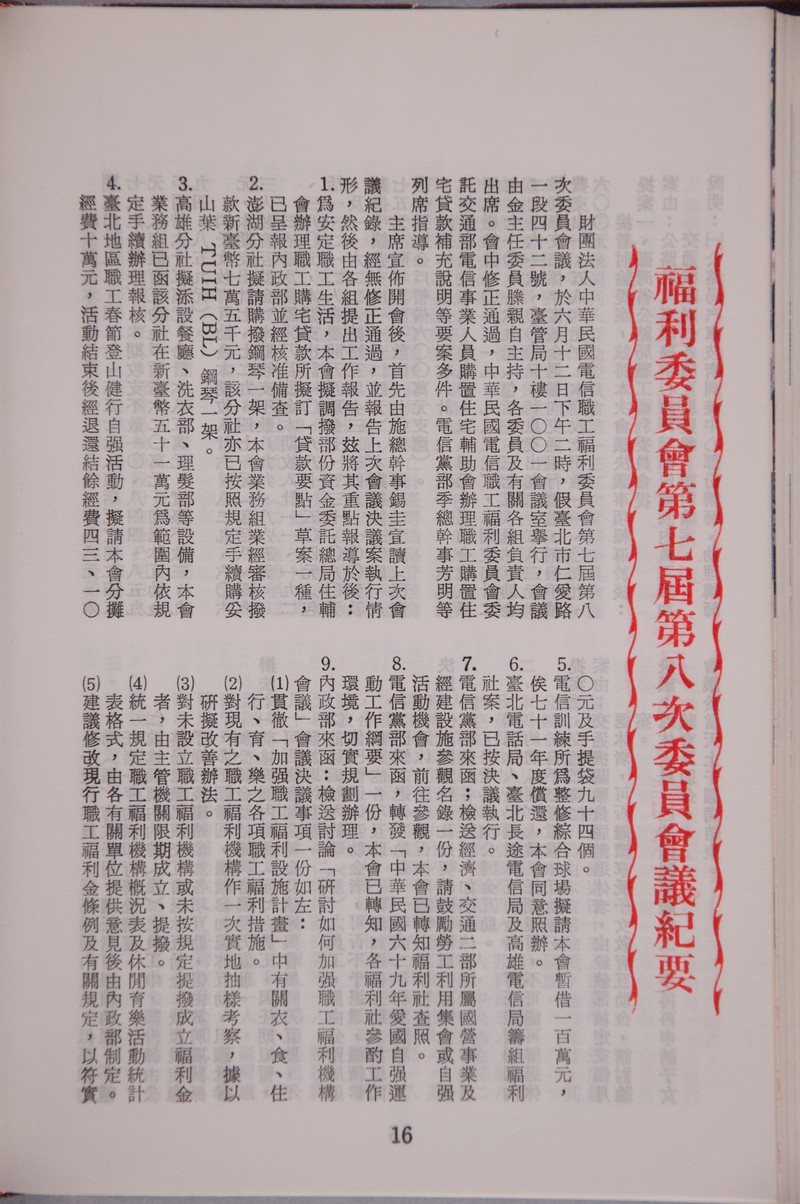 福利委員會第七屆第八次委員會議紀要
財團法人中華民國電信職工福利委員會第七屆第八
次委員會議，於六月十二日下午二時，假臺北市仁愛路
一段四十二號，臺管局十樓一〇〇一會議室舉行，會議
由金主任委員滕親自主持，各委員及有關各組負責人均
出席。會中修正通過，中華民國電信職工福利委員會委
託交通部電信事業人員購置住宅輔助會辦理職工購置住
宅貸款補充說明等要案多件。電信黨部季總幹事芳明等
列席指導。
主席宣佈開會後，首先由施總幹事錫圭宣讀上次會
議紀錄，經無修正通過，並報告上次會議決議案執行情
形，然後由各組提出工作報告，玆將其重點報導於後：
1.爲安定職工生活，本會擬調撥部份資金委託總局住輔
會辦理職工購宅貸款所擬訂「貸款要點」草案一種，
已呈報內政部並經核准備查。
2.澎湖分社擬請購撥鋼琴一架，本會業務組業經審核撥
款新臺幣七萬五千元，該分社亦已按照規定手續購妥
山葉「TUIH（BL）鋼琴一架。
3.高雄分社擬添設餐廳、洗衣部、理髮部等設備，本會
業務組已函該分社在新臺幣五十一萬元爲範圍內依規
定手續辦理報核。
4.臺北地區職工春節登山健行自强活動，擬請本會分攤
經費十萬元，活動結束後經退還結餘經費四三、一〇
〇元及手提袋九十四個。
5.電信訓練所爲整修綜合球場擬請本會暫借一百萬元，
俟七十一年度償還，本會同意照辦。
6.臺北電話局、臺北長途電信局及高雄電信局籌組福利
社案，已按決議執行。
7.電信黨部來函；檢送經濟、交通二部所屬國營事業及
經建設施參觀名錄一份，請鼓勵勞工利用集會或自强
活動機會，前往參觀，本會已轉知福利社查照。
8.電信黨部來函，轉發「中華民國六十九年愛國自强運
動工作綱要」一份，本會已轉知，各福利社參酌工作
環境，切實規劃辦理。
9.內政部來函：檢送討論「研討如何加强職工福利機構
會議」會議決議事項一份如左：
⑴貫徹「加强職工福利設施計畫」中有關衣、食、住
行、育、樂之各項職工福利措施。
⑵對現有之職工福利機構作一次實地抽樣考察，據以
研擬改善辦法。
⑶對未設立職工福利機構或未按規定提撥成立福利金
者，由主管機關限期成立、提撥。
⑷統一規定職工福利機構概況表及休閒育樂活動統計
表格式，由各有關單位提供意見後由內政部制定。
⑸建議修改現行職工福利金條例及有關規定，以符實
16